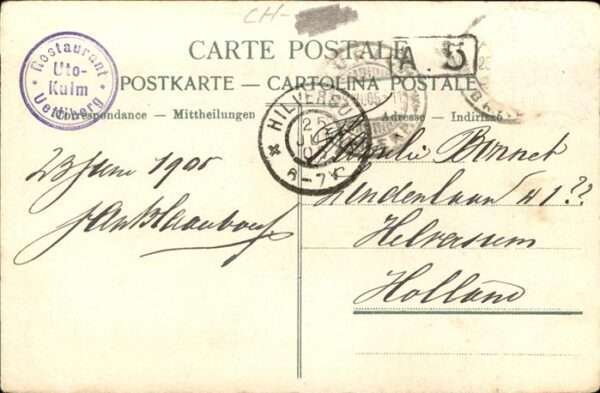 CH-
CARTE POSTALE
A. 5
POSTKARTE — CARTOLINA POSTALE
Correspondance — Mittheilungen
Adresse — Indirizzo
Restaurant
Uto-
Kulm
Uetliberg
HILVERSU
25
6-7V
23 Juni 1905
Familie Bornet
Lindenlaan 41??
Helversum
Holland